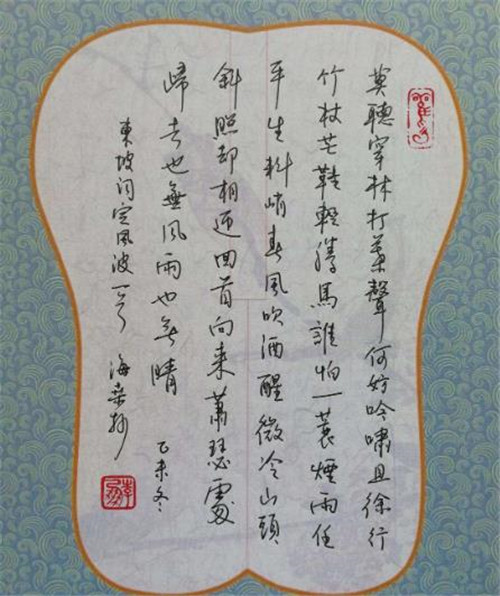 莫聽穿林打葉聲何妨吟嘯且徐行
竹杖芒鞋輕勝馬誰怕一蓑煙雨任
平生料峭春風吹酒醒微冷山頭
斜照却相迎回首向来蕭瑟處
歸去也無風雨也無晴 乙未冬
東坡词定風波一首 海棠抄